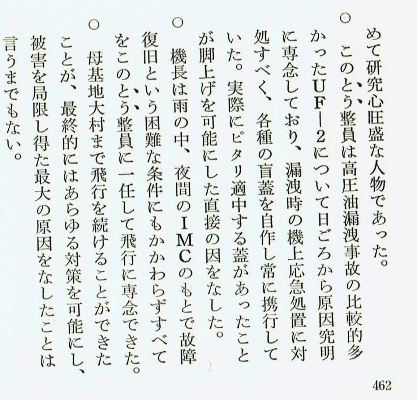 めて研究心旺盛な人物であった。
○　このとう整員は高圧油漏洩事故の比較的多
かったUF―2について日ごろから原因究明
に専念しており、漏洩時の機上応急処置に対
処すべく、各種の盲蓋を自作し常に携行して
いた。実際にピタリ適中する蓋があったこと
が脚上げを可能にした直接の因をなした。
○　機長は雨の中、夜間のIMCのもとで故障
復旧という困難な条件にもかかわらずすべて
をこのとう整員に一任して飛行に専念できた。
○　母基地大村まで飛行を続けることができた
ことが、最終的にはあらゆる対策を可能にし、
被害を局限し得た最大の原因をなしたことは
言うまでもない。
462